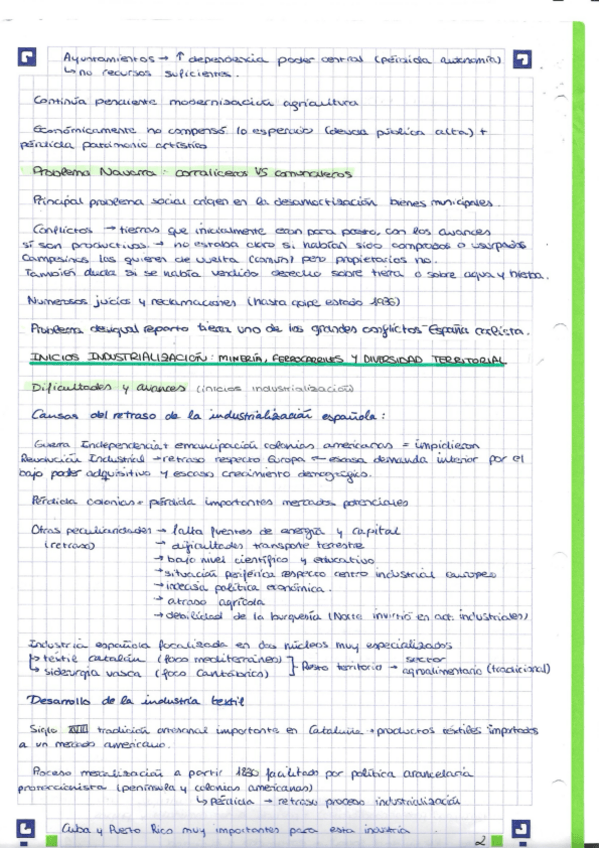 Ayuntamientos → ↑ dependencia poder central (pérdida autonomía)
↳ no recursos suficientes.
Continúa pendiente modernización agricultura
Económicamente no compensó lo esperado (deuda pública alta) +
pérdida patrimonio artístico
Problema Navarra: corraliceros VS comuneros
Principal problema social origen en la desamortización bienes municipales.
Conflictos → tierras que inicialmente eran para pasto, con los avances
sí son productivas. → no estaba claro si habían sido compradas o usurpadas
Campesinos las quieren de vuelta (común) pero propietarios no.
También duda si se había vendido derecho sobre tierra o sobre agua y hierba.
Numerosos juicios y reclamaciones (hasta golpe estado 1936)
Problema desigual reparto tierra uno de los grandes conflictos España
INICIOS INDUSTRIALIZACIÓN: MINERÍA, FERROCARRILES Y DIVERSIDAD TERRITORIAL
Dificultades y avances (inicios industrialización)
Causas del retraso de la industrialización española:
Guerra Independencia + emancipación colonias americanas = impidieron
Revolución Industrial → retraso respecto Europa ← escasa demanda interior por el
bajo poder adquisitivo y escaso crecimiento demográfico.
Pérdida colonias = pérdida importantes mercados potenciales
Otras peculiaridades → falta fuentes de energía y capital
(retraso) → dificultades transporte terrestre
→ bajo nivel científico y educativo
→ situación periférica respecto centro industrial europeo
→ indecisa política económica.
→ atraso agrícola
→ debilidad de la burguesía (Norte invirtió en act. industriales)
Industria española focalizada en dos núcleos muy especializados
↳ textil catalán (foco mediterráneo) ] Resto territorio → sector
↳ siderurgia vasca (foco cantábrico) agroalimentario (tradicional)
Desarrollo de la industria textil
Siglo XVIII tradición artesanal importante en Cataluña + productos textiles importados
a un mercado americano.
Proceso mecanización a partir 1830 facilitado por política arancelaria
proteccionista (península y colonias americanas)
↳ pérdida → retraso proceso industrialización
Cuba y Puerto Rico muy importantes para esta industria
2